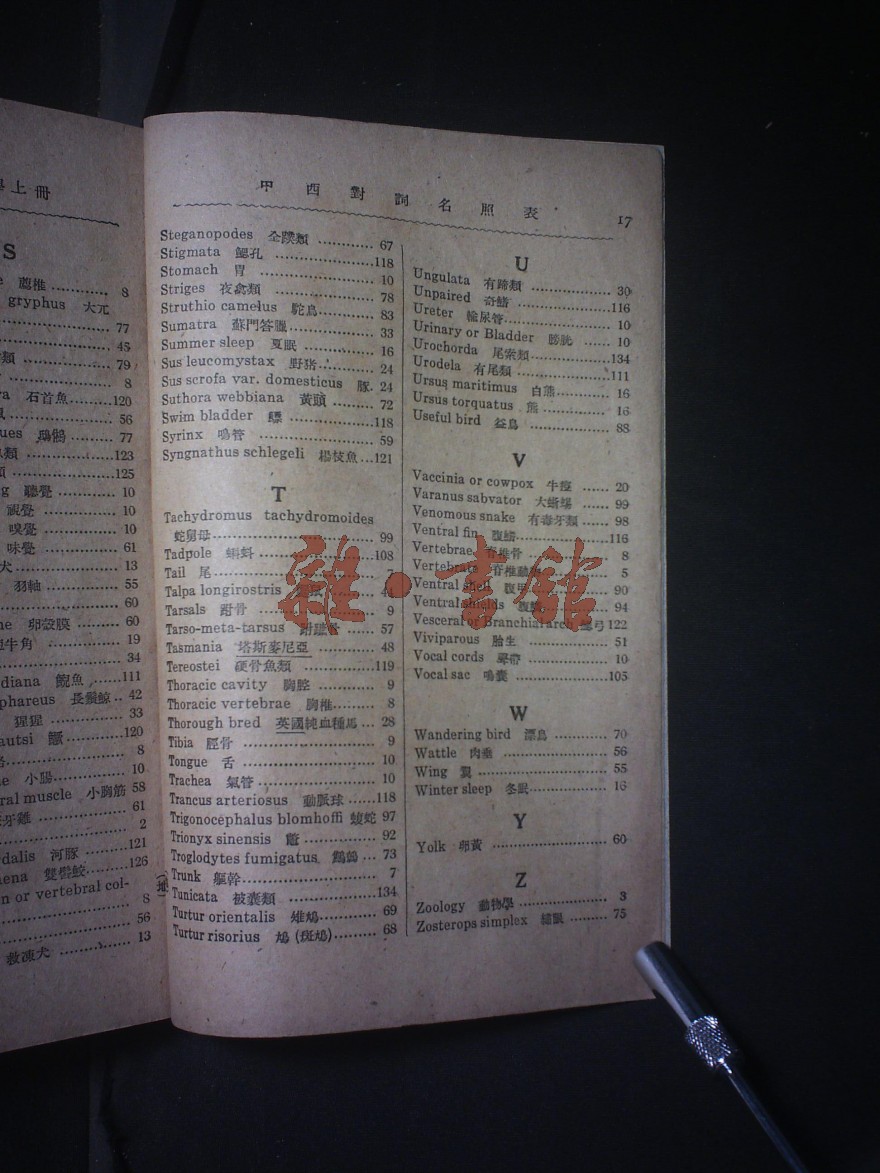 上冊
S
薦椎 ............ 8
gryphus 大兀
77
45
類 79
8
石首魚 120
56
ues 鵜鶘 77
類 123
125
聽覺 10
視覺 10
嗅覺 10
味覺 61
犬 13
羽軸 55
60
卵殼膜 60
牛角 19
34
diana 鯢魚 111
phareus 長鬚鯨 42
猩猩 33
autsi 鱖 120
8
小腸 10
ral muscle 小胸筋 58
61
2
dalis 河豚 121
ena 雙髻鮫 126
n or vertebral col-
8
56
救凍犬 13
中西對詞名照表 17
Steganopodes 全蹼類 ............ 67
Stigmata 鰓孔 ............118
Stomach 胃 ............ 10
Striges 夜禽類 ............ 78
Struthio camelus 駝鳥............ 83
Sumatra 蘇門答臘............ 33
Summer sleep 夏眠 ............ 16
Sus leucomystax 野猪............ 24
Sus scrofa var. domesticus 豚. 24
Suthora webbiana 黃頭 ......... 72
Swim bladder 鰾 ............118
Syrinx 鳴管 ............ 59
Syngnathus schlegeli 楊枝魚...121
T
Tachydromus tachydromoides
蛇舅母............ 99
Tadpole 蝌蚪 ............108
Tail 尾 ............ 7
Talpa longirostris
Tarsals 跗骨 ............ 9
Tarso-meta-tarsus 跗蹠骨 ...... 57
Tasmania 塔斯麥尼亞 ............ 48
Tereostei 硬骨魚類 ............119
Thoracic cavity 胸腔 ............ 9
Thoracic vertebrae 胸椎......... 8
Thorough bred 英國純血種馬 ... 28
Tibia 脛骨 ............ 9
Tongue 舌 ............ 10
Trachea 氣管 ............ 10
Trancus arteriosus 動脈球 ......118
Trigonocephalus blomhoffi 蝮蛇 97
Trionyx sinensis 鼈 ............ 92
Troglodytes fumigatus. 鷦鷯 ... 73
Trunk 軀幹............ 7
Tunicata 被囊類 ............134
Turtur orientalis 雉鳩 ......... 69
Turtur risorius 鳩 (斑鳩)......... 68
U
Ungulata 有蹄類 ............ 30
Unpaired 奇鰭 ............116
Ureter 輸尿管............ 10
Urinary or Bladder 膀胱 ...... 10
Urochorda 尾索類............134
Urodela 有尾類............111
Ursus maritimus 白熊............ 16
Ursus torquatus 熊 ............ 16
Useful bird 益鳥 ............ 88
V
Vaccinia or cowpox 牛痘 ...... 20
Varanus sabvator 大蜥蜴 ...... 99
Venomous snake 有毒牙類 ...... 98
Ventral fin 腹鰭............116
Vertebrae 脊椎骨 ............ 8
Vertebrata 脊椎動物 ............ 5
Ventral shell 腹甲 ............ 90
Ventral shields 腹 ............ 94
Vesceral or Branchial arch 弓 122
Viviparous 胎生 ............ 51
Vocal cords 聲帶 ............ 10
Vocal sac 鳴囊 ............105
W
Wandering bird 漂鳥 ............ 70
Wattle 肉垂 ............ 56
Wing 翼 ............ 55
Winter sleep 冬眠............ 16
Y
Yolk 卵黃 ............ 60
Z
Zoology 動物學 ............ 3
Zosterops simplex 繡眼 ......... 75
雜·書館